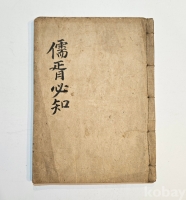 儒胥必知
kobay